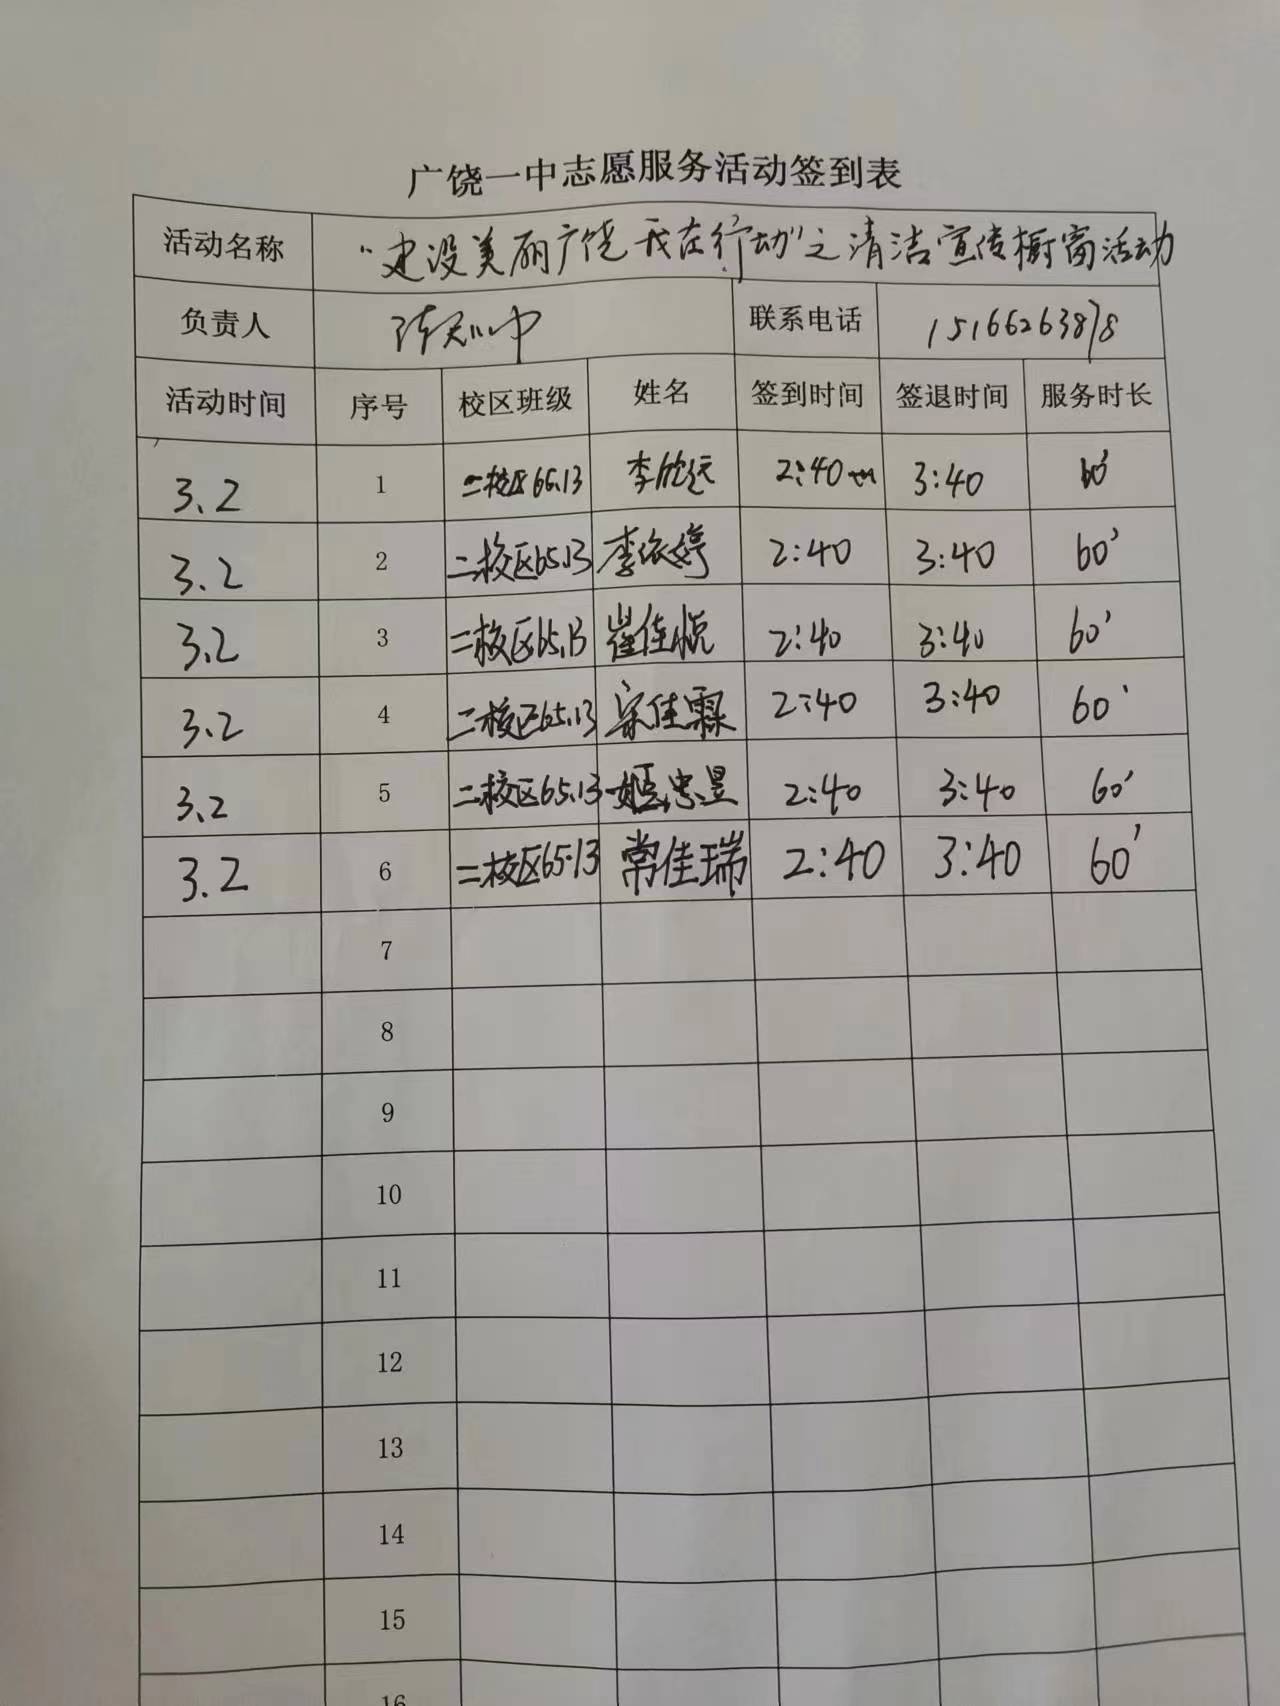 广饶一中志愿服务活动签到表
活动名称 “建设美丽广饶 我在行动”之清洁宣传橱窗活动
负责人 联系电话 15166263878
活动时间 序号 校区班级 姓名 签到时间 签退时间 服务时长
3.2 1 二校区66.13 李欣远 2:40 3:40 60′
3.2 2 二校区65.13 李依婷 2:40 3:40 60′
3.2 3 二校区65.13 崔佳悦 2:40 3:40 60′
3.2 4 二校区65.13 宋佳霖 2:40 3:40 60′
3.2 5 二校区65.13 2:40 3:40 60′
3.2 6 二校区65.13 常佳瑞 2:40 3:40 60′
7
8
9
10
11
12
13
14
15
16